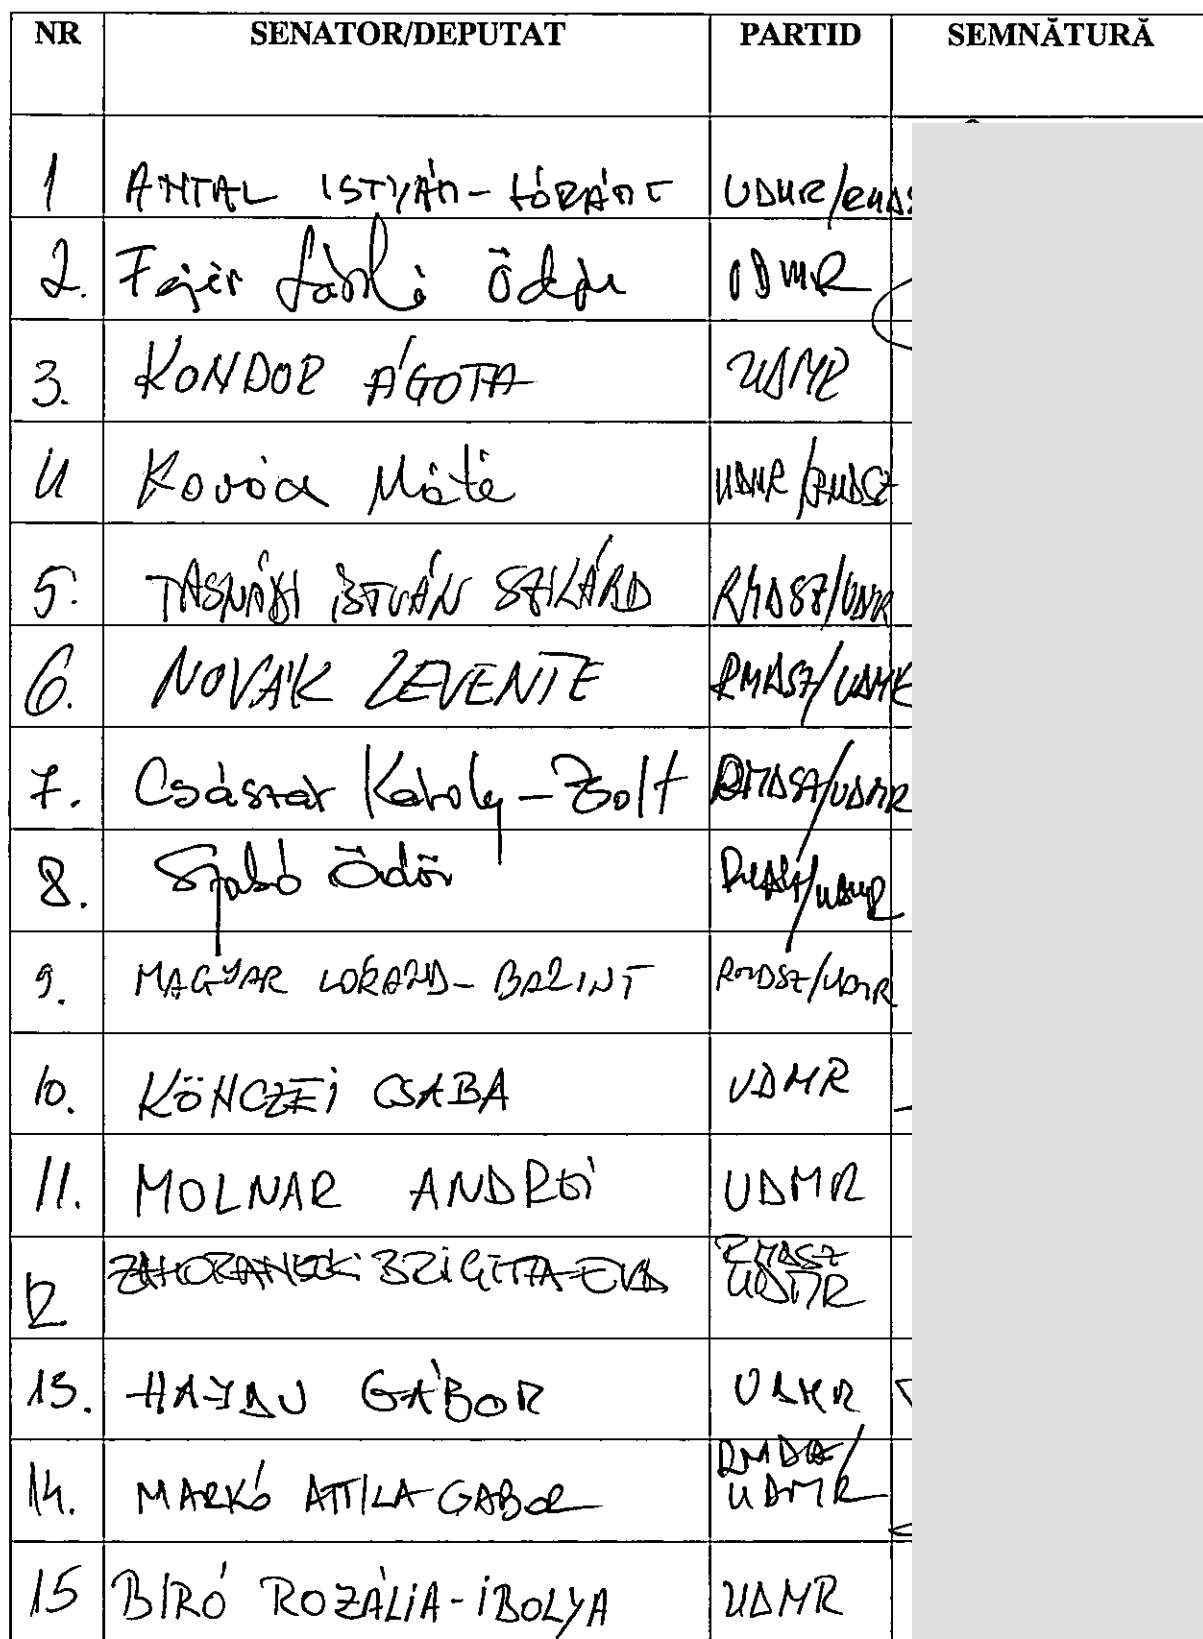 NR SENATOR/DEPUTAT PARTID SEMNĂTURĂ
1 ANTAL ISTVÁN-LÓRÁNT UDMR/RMDS
2. Fejér László Ödön UDMR
3. KONDOR ÁGOTA UDMR
4 Kovács Máté UDMR/RMDSZ
5. TASNÁDI ISTVÁN SZILÁRD RMDSZ/UDMR
6. NOVÁK LEVENTE RMDSZ/UDMR
7. Császár Károly-Zsolt RMDSZ/UDMR
8. Szabó Ödön RMDSZ/UDMR
9. MAGYAR LÓRÁND-BÁLINT RMDSZ/UDMR
10. KÖNCZEI CSABA UDMR
11. MOLNAR ANDREI UDMR
12 BRIGITTA-EVA RMDSZ
UDMR
13. HAJDU GÁBOR UDMR
14. MARKÓ ATTILA-GABOR RMDSZ/
UDMR
15 BIRÓ ROZÁLIA-IBOLYA UDMR